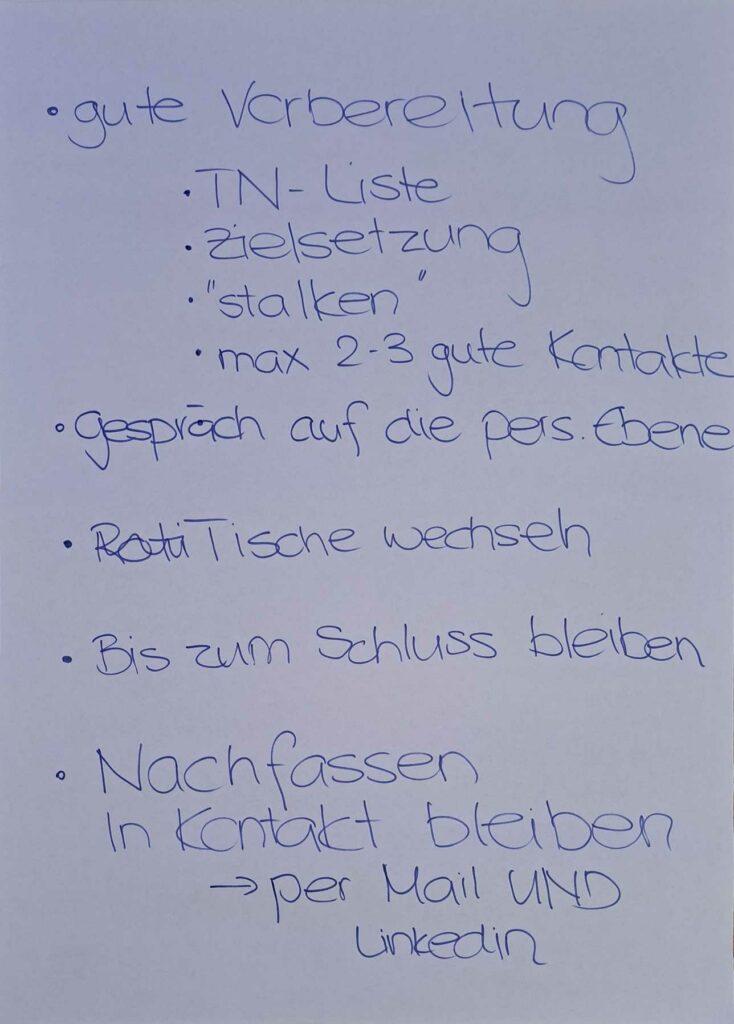 • gute Vorbereitung
• TN-Liste
• Zielsetzung
• "stalken"
• max 2-3 gute Kontakte
• Gespräch auf die pers. Ebene
• Tische wechseln
• Bis zum Schluss bleiben
• Nachfassen
In Kontakt bleiben
→ per Mail UND
Linkedin